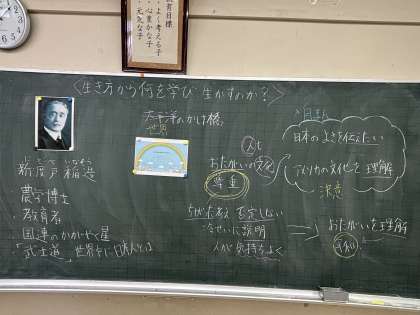 教育目標
・よく考える子
・心豊かな子
・元気な子
〈生き方から何を学び 生かすのか?〉
太平洋のかけ橋
世界
新渡戸稲造
にとべ いなぞう
農学博士
・教育者
・国連のかがやく星
・「武士道」
世界中に
人と
おたがいの文化
尊重
ちがう考え 否定しない
冷せいに説明
人が気持ちよく
日本のよさを伝えたい
アメリカの文化を理解
決意
おたがいを理解
平和